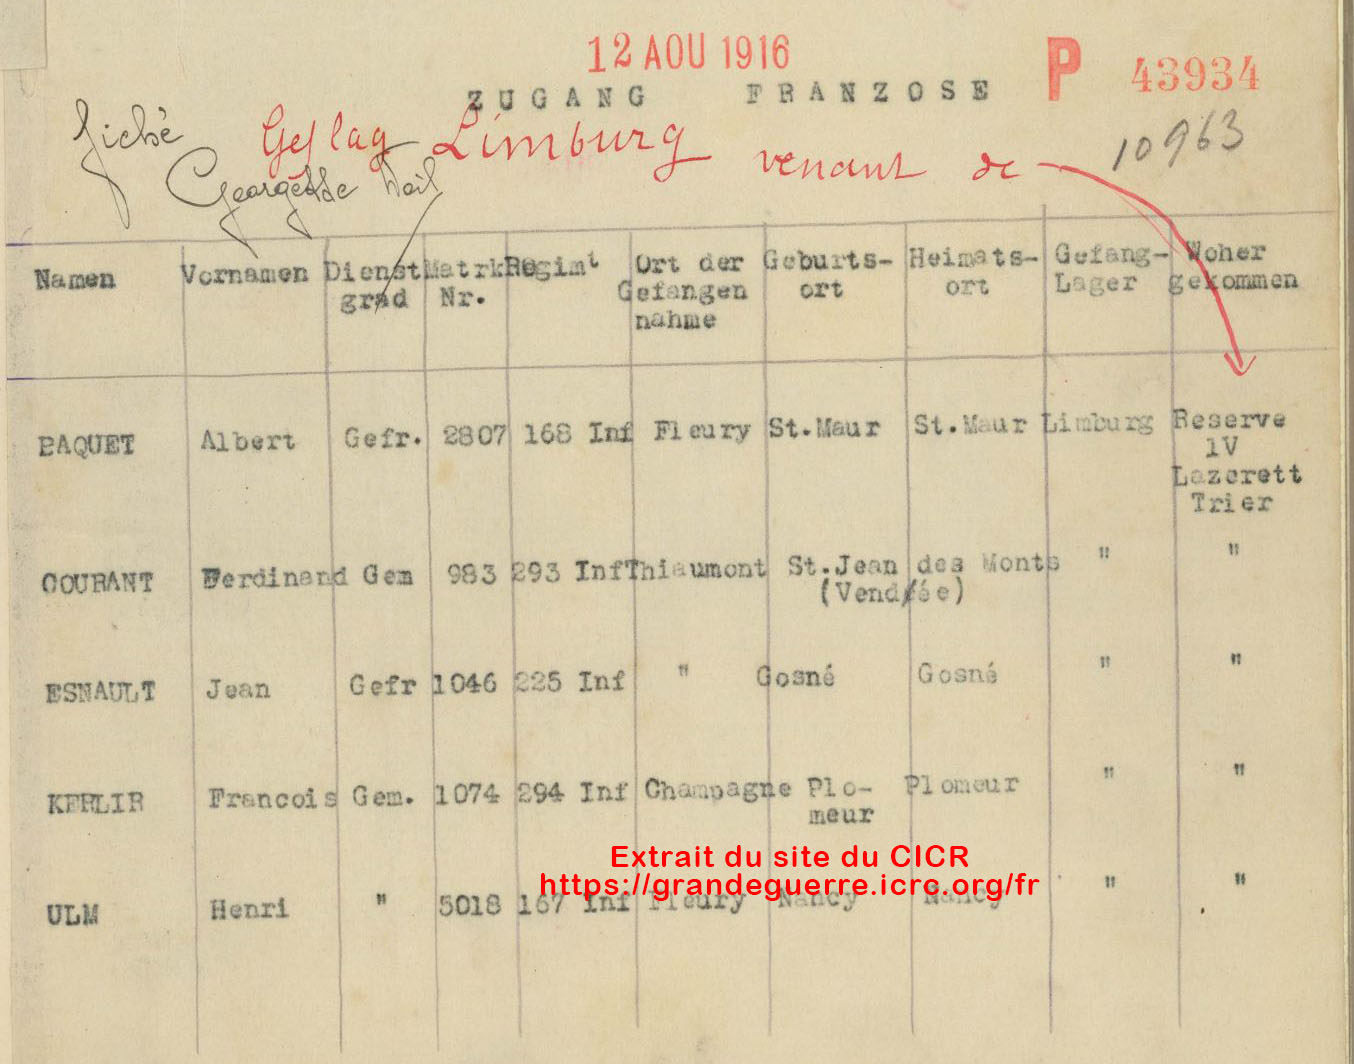 12 AOU 1916
P 43934
ZUGANG FRANZOSE
10963
fiché
Geflag Limburg venant de
Georgette Weil
Namen Vornamen Dienst Matrk Regimt Ort der Geburts- Heimats- Gefang- Woher
grad Nr. Gefangen ort ort Lager gekommen
nahme
PAQUET Albert Gefr. 2807 168 Inf Fleury St.Maur St.Maur Limburg Reserve
1V
Lazerett
Trier
COURANT Ferdinand Gem 983 293 Inf Thiaumont St.Jean des Monts " "
(Vendée)
ESNAULT Jean Gefr 1046 225 Inf " Gosné Gosné " "
KERLIR Francois Gem. 1074 294 Inf Champagne Plo- Plomeur " "
meur
Extrait du site du CICR
https://grandeguerre.icrc.org/fr
ULM Henri " 5018 167 Inf Fleury Nancy Nancy " "